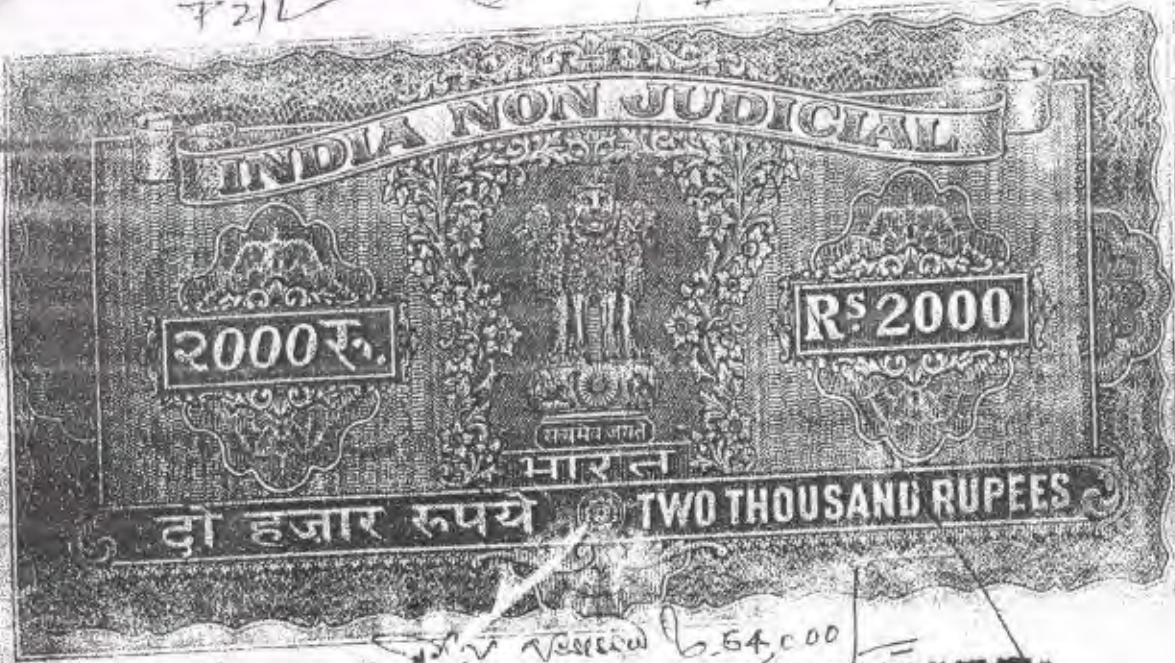 INDIA NON JUDICIAL
२000रु.
Rs 2000
सत्यमेव जयते
भारत
दो हजार रुपये
TWO THOUSAND RUPEES
54,000